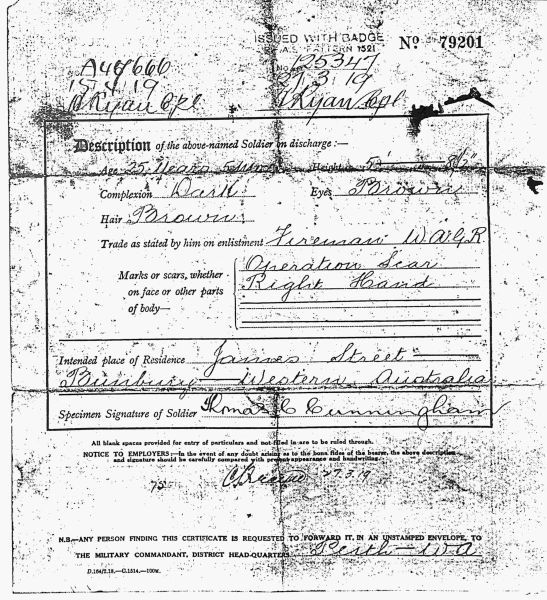 ISSUED WITH BADGE
A.S. PATTERN 1521
No 79201
A44666
No 125347
15.4.19
27.3.19
Ryan Cpl
Ryan Cpl
Description of the above-named Soldier on discharge:—
Age 25 Years 5 Height 5 8½"
Complexion Dark Eyes Brown
Hair Brown
Trade as stated by him on enlistment Fireman W.A.G.R
Marks or scars, whether on face or other parts of body—
Operation Scar
Right Hand
Intended place of Residence James Street
Bunbury Western Australia
Specimen Signature of Soldier Thomas C Cunningham
All blank spaces provided for entry of particulars and not filled in are to be ruled through.
NOTICE TO EMPLOYERS:—In the event of any doubt arising as to the bona fides of the bearer, the above description
and signature should be carefully compared with present appearance and handwriting.
27.3.19
N.B.—ANY PERSON FINDING THIS CERTIFICATE IS REQUESTED TO FORWARD IT, IN AN UNSTAMPED ENVELOPE, TO
THE MILITARY COMMANDANT, DISTRICT HEAD-QUARTERS Perth—W.A
D.164/2.18.—C.1514.—100M.